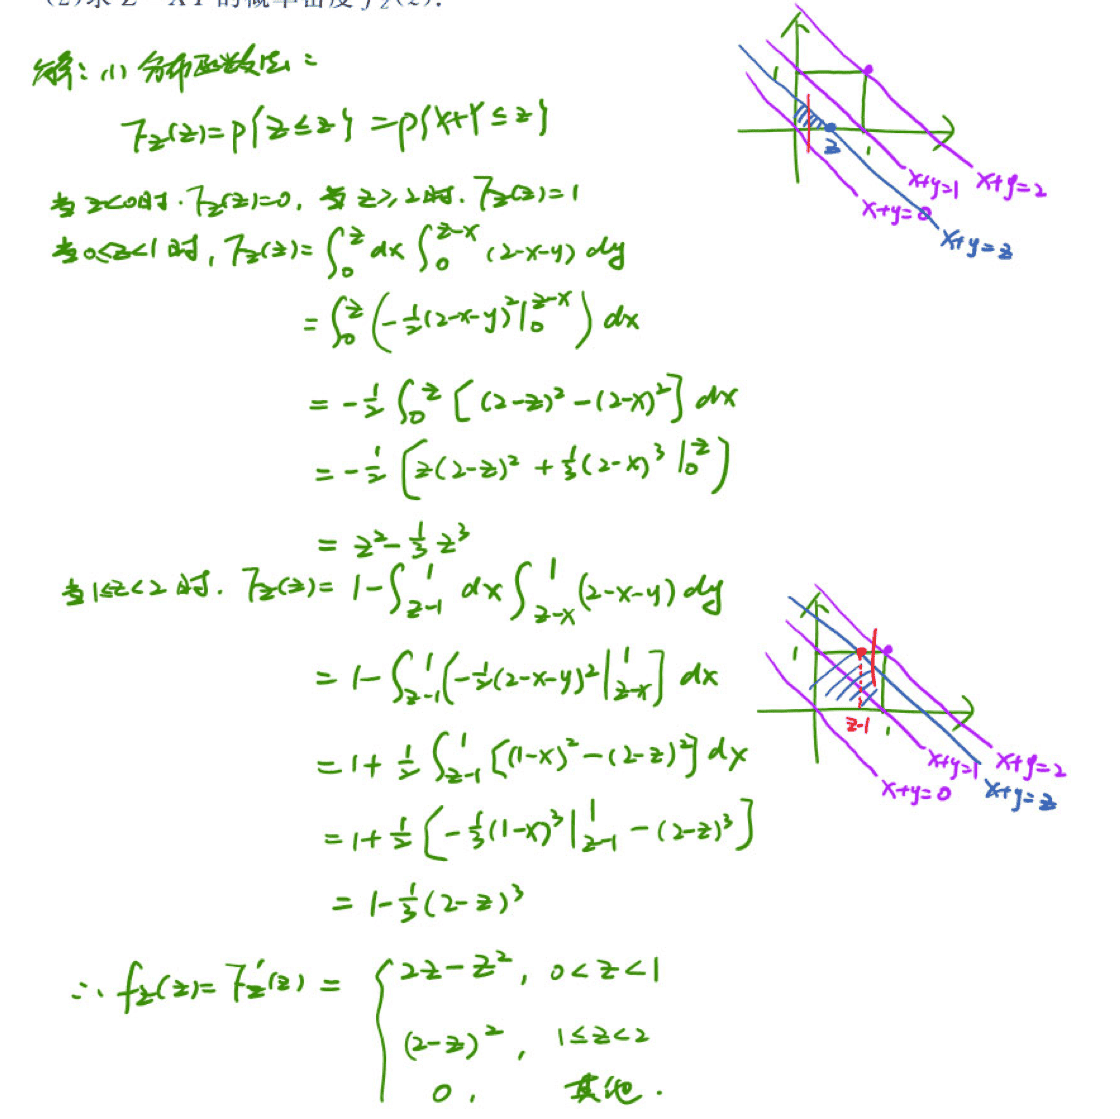 (2)求 Z=XY 的概率密度 f_Z(z).
解: (1) 分布函数法:
F_Z(z)=P{Z≤z}=P{X+Y≤z}
当z<0时. F_Z(z)=0, 当z≥2时. F_Z(z)=1
当0≤z<1时, F_Z(z)=∫_0^z dx ∫_0^{z-x} (2-x-y) dy
=∫_0^z (-1/2(2-x-y)^2|_0^{z-x}) dx
=-1/2 ∫_0^z [(2-z)^2-(2-x)^2] dx
=-1/2 [z(2-z)^2+1/3(2-x)^3|_0^z]
=z^2-1/3 z^3
当1≤z<2时. F_Z(z)=1-∫_{z-1}^1 dx ∫_{z-x}^1 (2-x-y) dy
=1-∫_{z-1}^1 [-1/2(2-x-y)^2|_{z-x}^1] dx
=1+1/2 ∫_{z-1}^1 [(1-x)^2-(2-z)^2] dx
=1+1/2 [-1/3(1-x)^3|_{z-1}^1-(2-z)^3]
=1-1/3(2-z)^3
∴ f_Z(z)=F_Z'(z)= { 2z-z^2, 0<z<1
(2-z)^2, 1≤z<2
0, 其他.
1
z
1
x+y=1
x+y=2
x+y=0
x+y=z
1
z-1
1
x+y=1
x+y=2
x+y=0
x+y=z